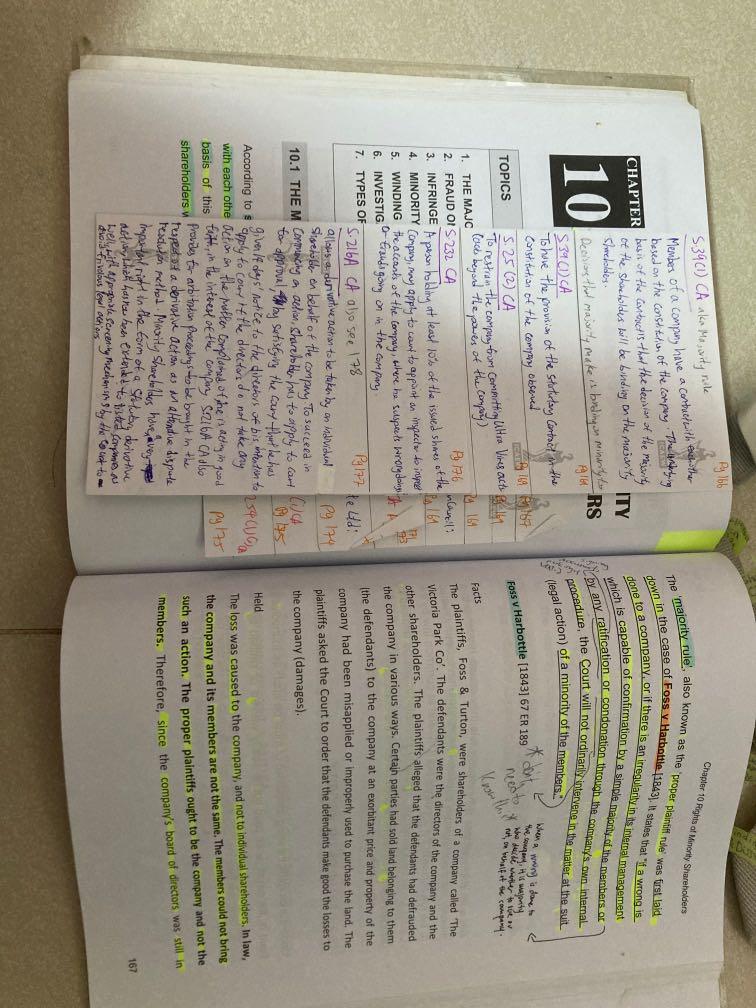 CHAPTER
10
ITY
RS
TOPICS
1. THE MAJ
2. FRAUD O
3. INFRINGE
4. MINORITY
5. WINDING
6. INVESTIG
7. TYPES OF
10.1 THE M
According to s
with each othe
basis of this
shareholders
Pg 166
S39(1) CA aka Majority rule
Members of a company have a contract with each other
based on the constitution of the company. The
basis of the contract is that the decision of the majority
of the shareholders will be binding on the minority
shareholders.
Decisions that majority make is binding on minority
S39(1) CA
To have the provision of the statutory contract in the
constitution of the company observed
S. 25 (2) CA
To restrain the company from committing Ultra Vires acts
(acts beyond the powers of the company)
Pg 176
S-232 CA
A person holding at least 10% of the issued shares of the
company, may apply to court to appoint an inspector to inspect
the accounts of the company, where he suspects wrongdoing
or fraud going on in the company
Pg 177
S-216A CA also see 178
allows a derivative action to be taken by an individual
shareholder on behalf of the company. To succeed in
commencing an action, shareholder has to apply to court
for approval, by satisfying the court that he has
given 14 days' notice to the directors of his intention to
apply to court if the directors do not take any
action in the matter complained of, he is acting in good
faith, in the interest of the company. S216A CA also
provides for arbitration proceedings to be brought in the
respect of a derivative action as an alternative dispute
resolution method. Minority shareholders have a very
important right in the form of a statutory derivative
action, which has now been extended to listed companies as
well, with appropriate screening mechanisms by the court to
avoid frivolous legal actions
Pg 174
Pg 175
Pg 175
Chapter 10 Rights of Minority Shareholders
The 'majority rule', also known as the 'proper plaintiff rule' was first laid
down in the case of Foss v Harbottle [1843]. It states that "if a wrong is
done to a company, or if there is an irregularity in its internal management
which is capable of confirmation by a simple majority of the members or
by any ratification or condonation through the company's own internal
procedure, the Court will not ordinarily intervene in the matter at the suit
(legal action) of a minority of the members."
Foss v Harbottle [1843] 67 ER 189
* only
need to
know this *
When a wrong is done to
the company, it is majority
who decide whether to sue or
not, on behalf of the company.
Facts
The plaintiffs, Foss & Turton, were shareholders of a company called 'The
Victoria Park Co'. The defendants were the directors of the company and the
other shareholders. The plaintiffs alleged that the defendants had defrauded
the company in various ways. Certain parties had sold land belonging to them
(the defendants) to the company at an exorbitant price and property of the
company had been misapplied or improperly used to purchase the land. The
plaintiffs asked the Court to order that the defendants make good the losses to
the company (damages).
Held
The loss was caused to the company, and not to individual shareholders. In law,
the company and its members are not the same. The members could not bring
such an action. The proper plaintiffs ought to be the company and not the
members. Therefore, since the company's board of directors was still in
167